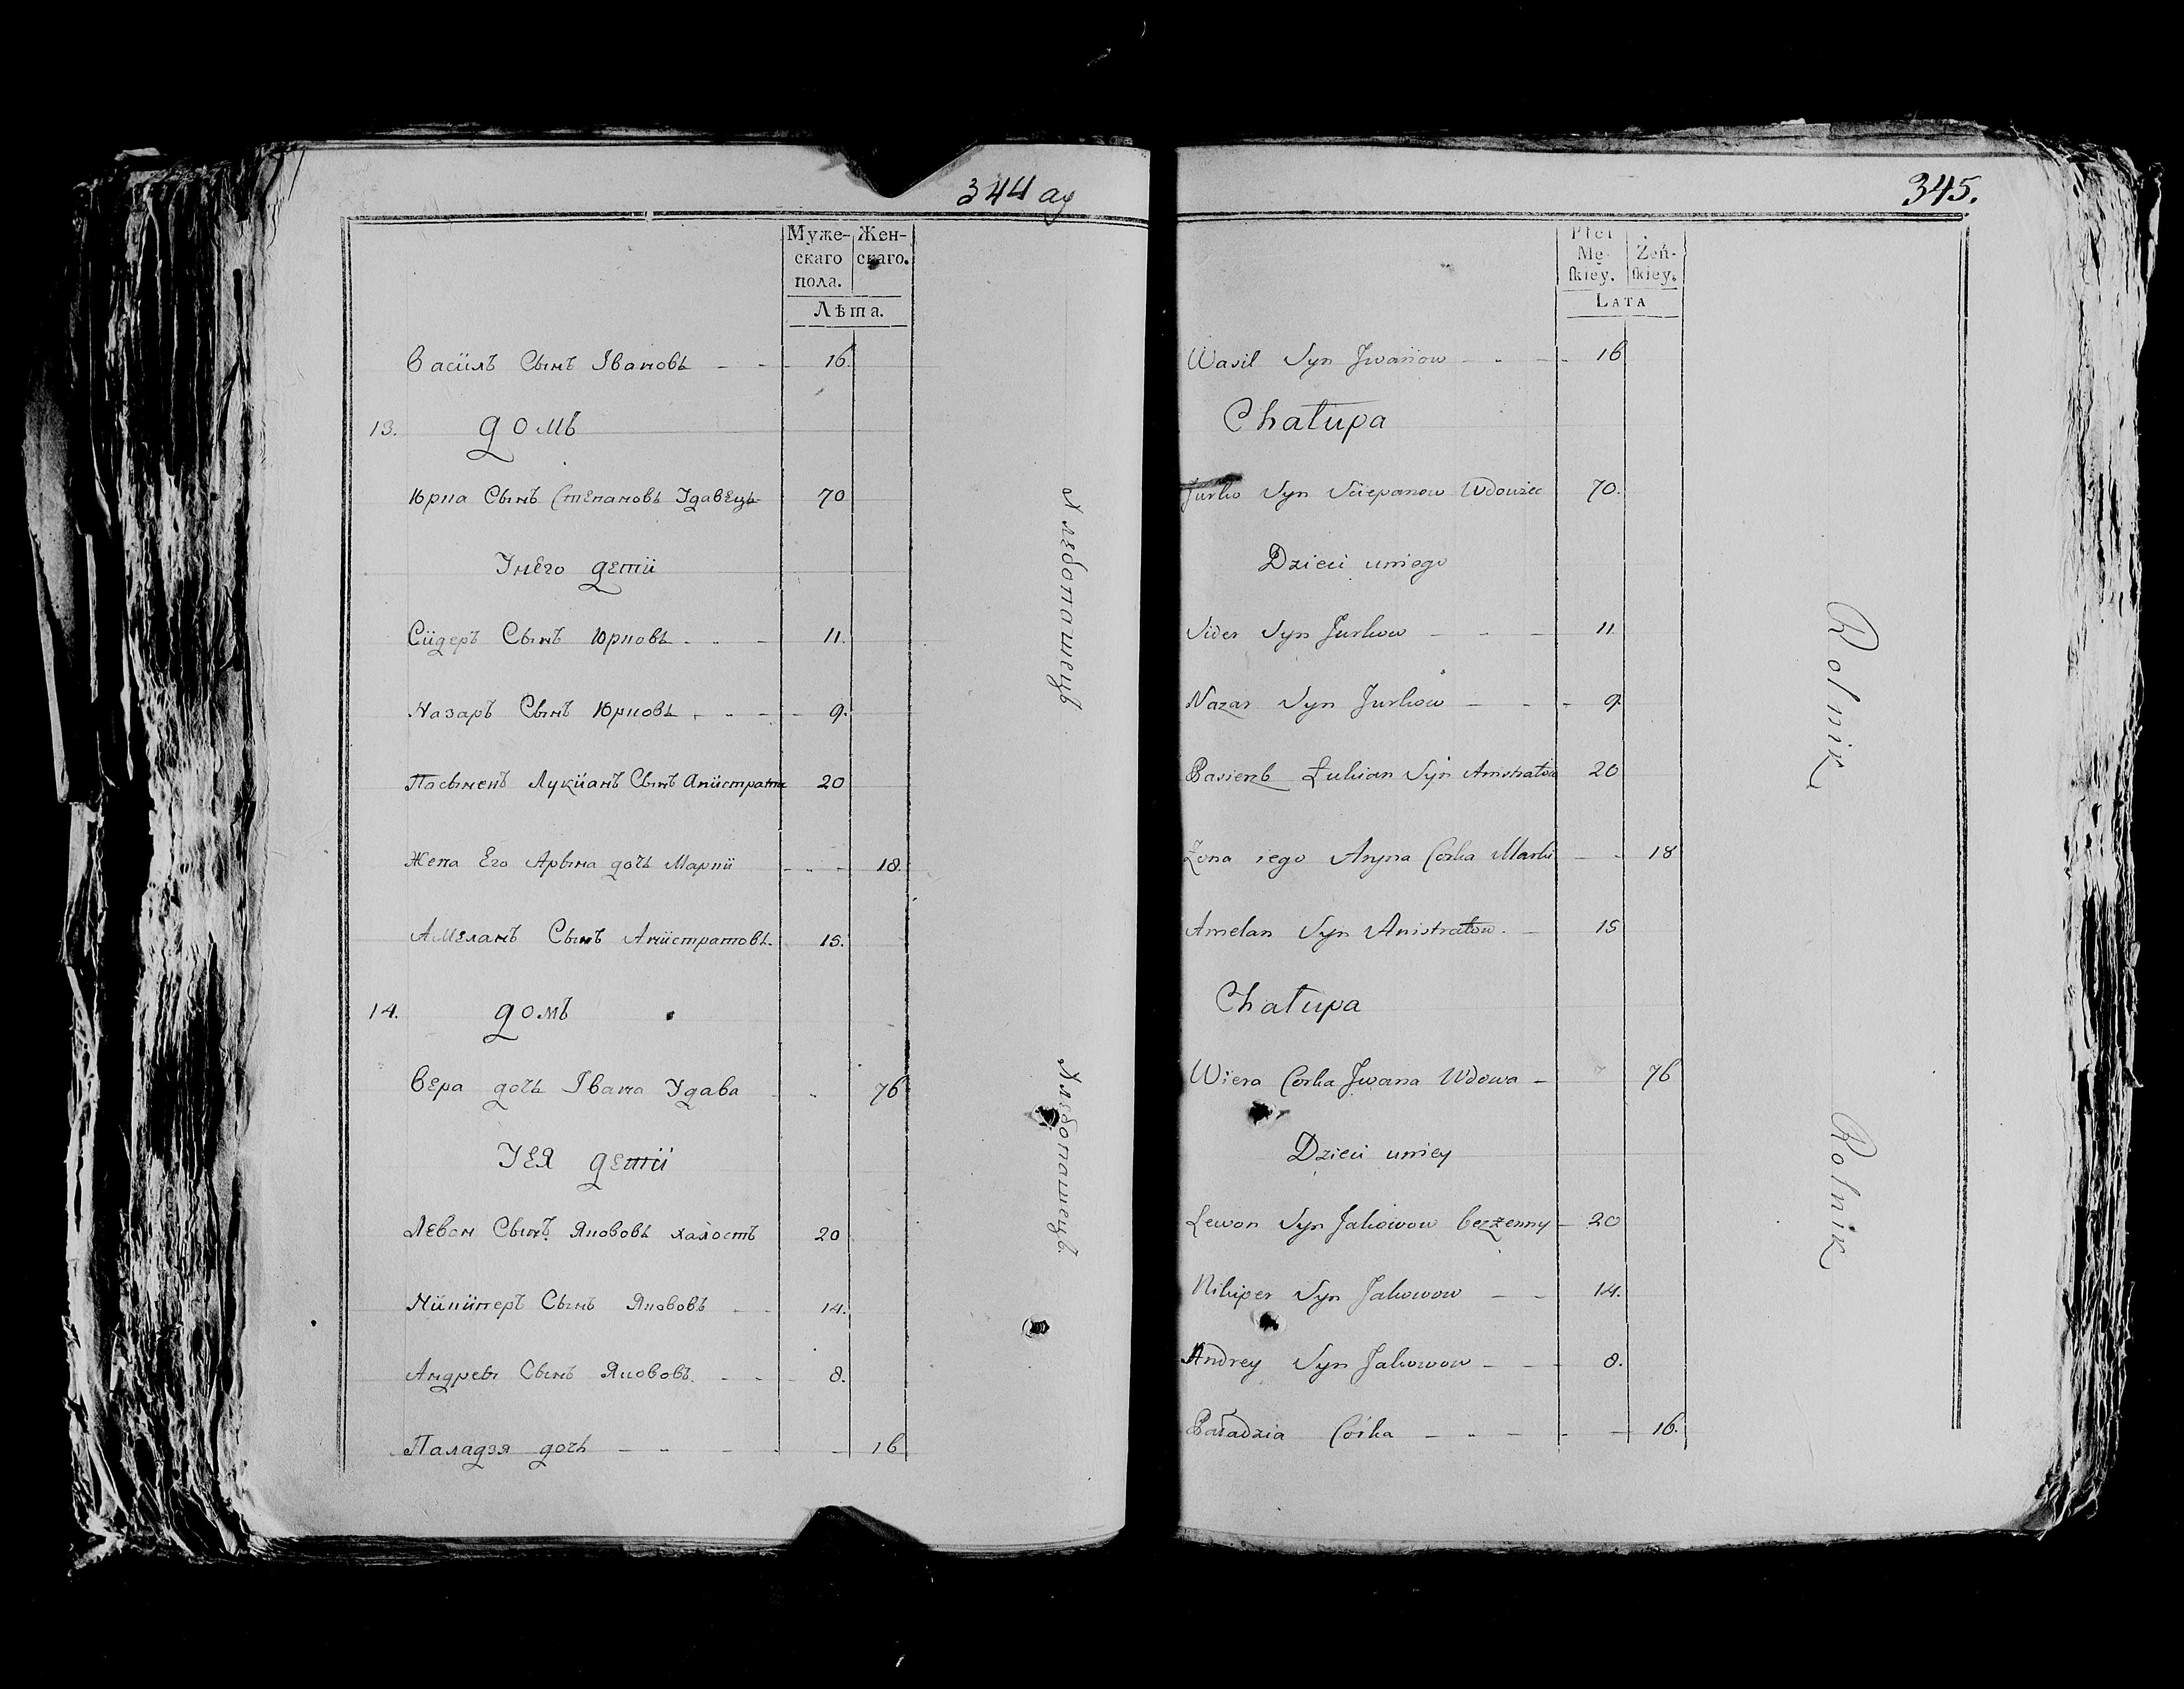 344 ау
Муже- Жен-
скаго скаго.
пола.
Лѣта.
Васiилъ Сынъ Iвановъ - - 16.
13. домъ
Юрка Сынъ Степановъ Удавецъ 70
Унего детiи
Сiидеръ Сынъ Юрковъ - - - 11.
Назаръ Сынъ Юрковъ - - - 9.
Пасынокъ Лукiанъ Сынъ Анiистрата 20
Жена Его Арына дочь Маркiи - - - 18.
Амеланъ Сынъ Анiистратовъ. 15.
14. домъ
Вера дочь Iвана Удава 76
Уея детiи
Левон Сынъ Яковovъ халостъ 20
Нiикiиперъ Сынъ Якововъ - - 14.
Андреы Сынъ Якововъ. - - - 8.
Паладзя дочь - - - - - 16
Алебопашецъ
Алебопашецъ.
345.
Płci
Mę- Żeń-
ſkiey. ſkiey.
LATA
Wasil Syn Jwanow - - - 16
Chałupa
Jurko Syn Sciepanow Wdowiec 70.
Dzieci uniego
Sider Syn Jurkow - - - 11.
Nazar Syn Jurkow - - - 9.
Pasierzb Łukian Syn Anistratow 20
Żona iego Aryna Corka Marki - - 18
Amelan Syn Anistratow. - 15
Chałupa
Wiera Corka Jwana Wdowa - 76
Dzieci uniey
Lewon Syn Jakowow bezzenny - 20
Nikiper Syn Jakowow - - 14.
Andrey Syn Jakowow - - - 8.
Paładzia Córka - - - - - 16.
Rolnik
Rolnik